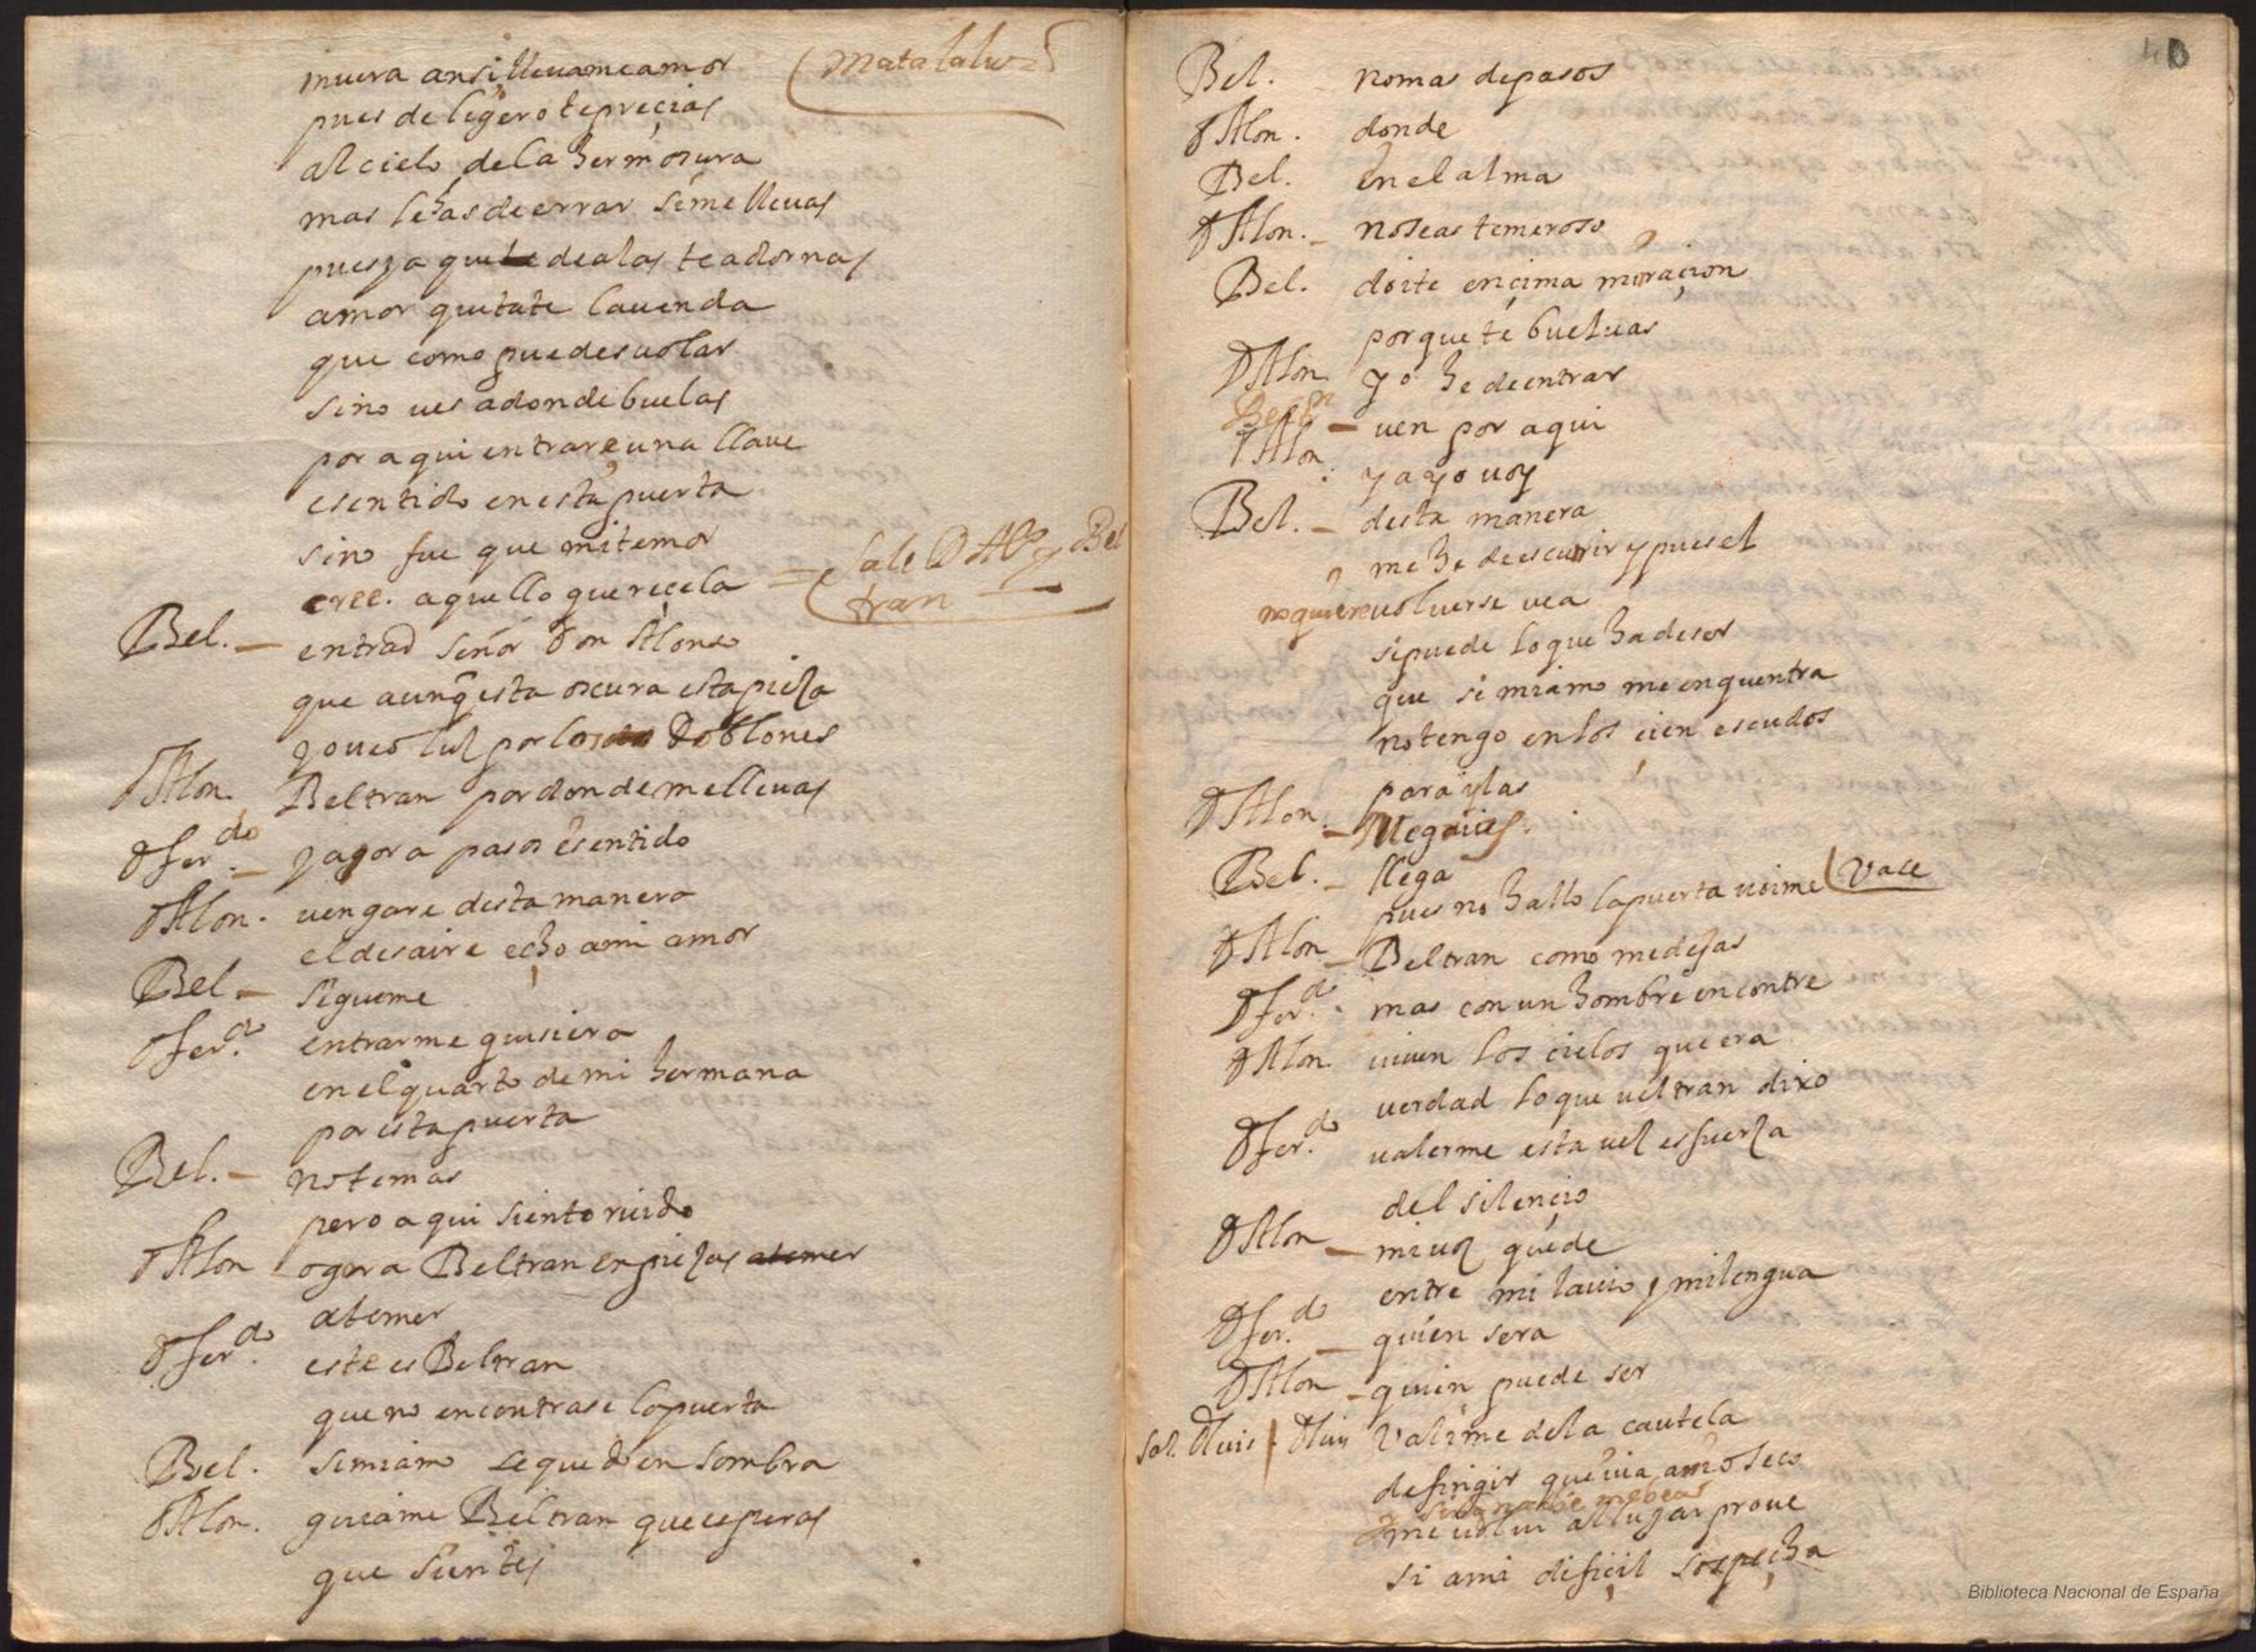 muera ansi lleuame amor (Mata la luz
pues de ligero te precias
al cielo de la hermosura
mas le has de errar si me lleuas
pues ya que de alas te adornas
amor quitate la uenda
que como puedes uolar
sino ues adonde buelas
por aqui entrare una llaue
e sentido en esta puerta
sino fue que mi temor
cree aquello que reçela = (Sale D Alº y Bel
tran
Bel. — entrad señor Don Alonso
que aunq esta oscura esta pieza
yo ueo luz por los Doblones
D Alon. Beltran por donde me lleuas
D fer.do — y agora pasos e sentido
D Alon. uengare desta manera
el desaire echo a mi amor
Bel — sigueme
D fer.do entrarme quisiera
en el quarto de mi hermana
por esta puerta
Bel. — no temas
pero aqui siento ruido
D Alon ogora Beltran enpiezas a temer
a temer
D fer.do este es Beltran
que no encontrase la puerta
Bel. si mi amo se quedo en sombra
D Alon. guiame Beltran que esperas
que sientes
Bel. no mas de pasos
D Alon. donde
Bel. en el alma
D Alon. — no seas temeroso
Bel. doite ençima mi raçion
porque te bueluas
D Alon yo he de entrar
Beltn — uen por aqui
D Alon. ya yo uoy
Bel. — desta manera
me he de escurrir y pues el
no quiere uoluerse uea
si puede lo que ha de ser
que si mi amo me enquentra
no tengo en los çien escudos
para ylas
D Alon. — llegais.
Bel. — llega
pues no hallo la puerta uoime (Vase
D Alon — Beltran como me dejas
D fer.do mas con un hombre encontre
D Alon. uiuen los cielos que era
uerdad lo que ueltran dixo
D fer.do ualerme esta uez es fuerza
del silençio
D Alon — mi uoz quede
entre mi lauio y mi lengua
D fer.do — quien sera
D Alon — quien puede ser
Sal. D luis D luis Valime de la cautela
de fingir que uia
y sin que nadie me beas
me uolui al lugar proue
si a mi dificil sospecha
Biblioteca Nacional de España